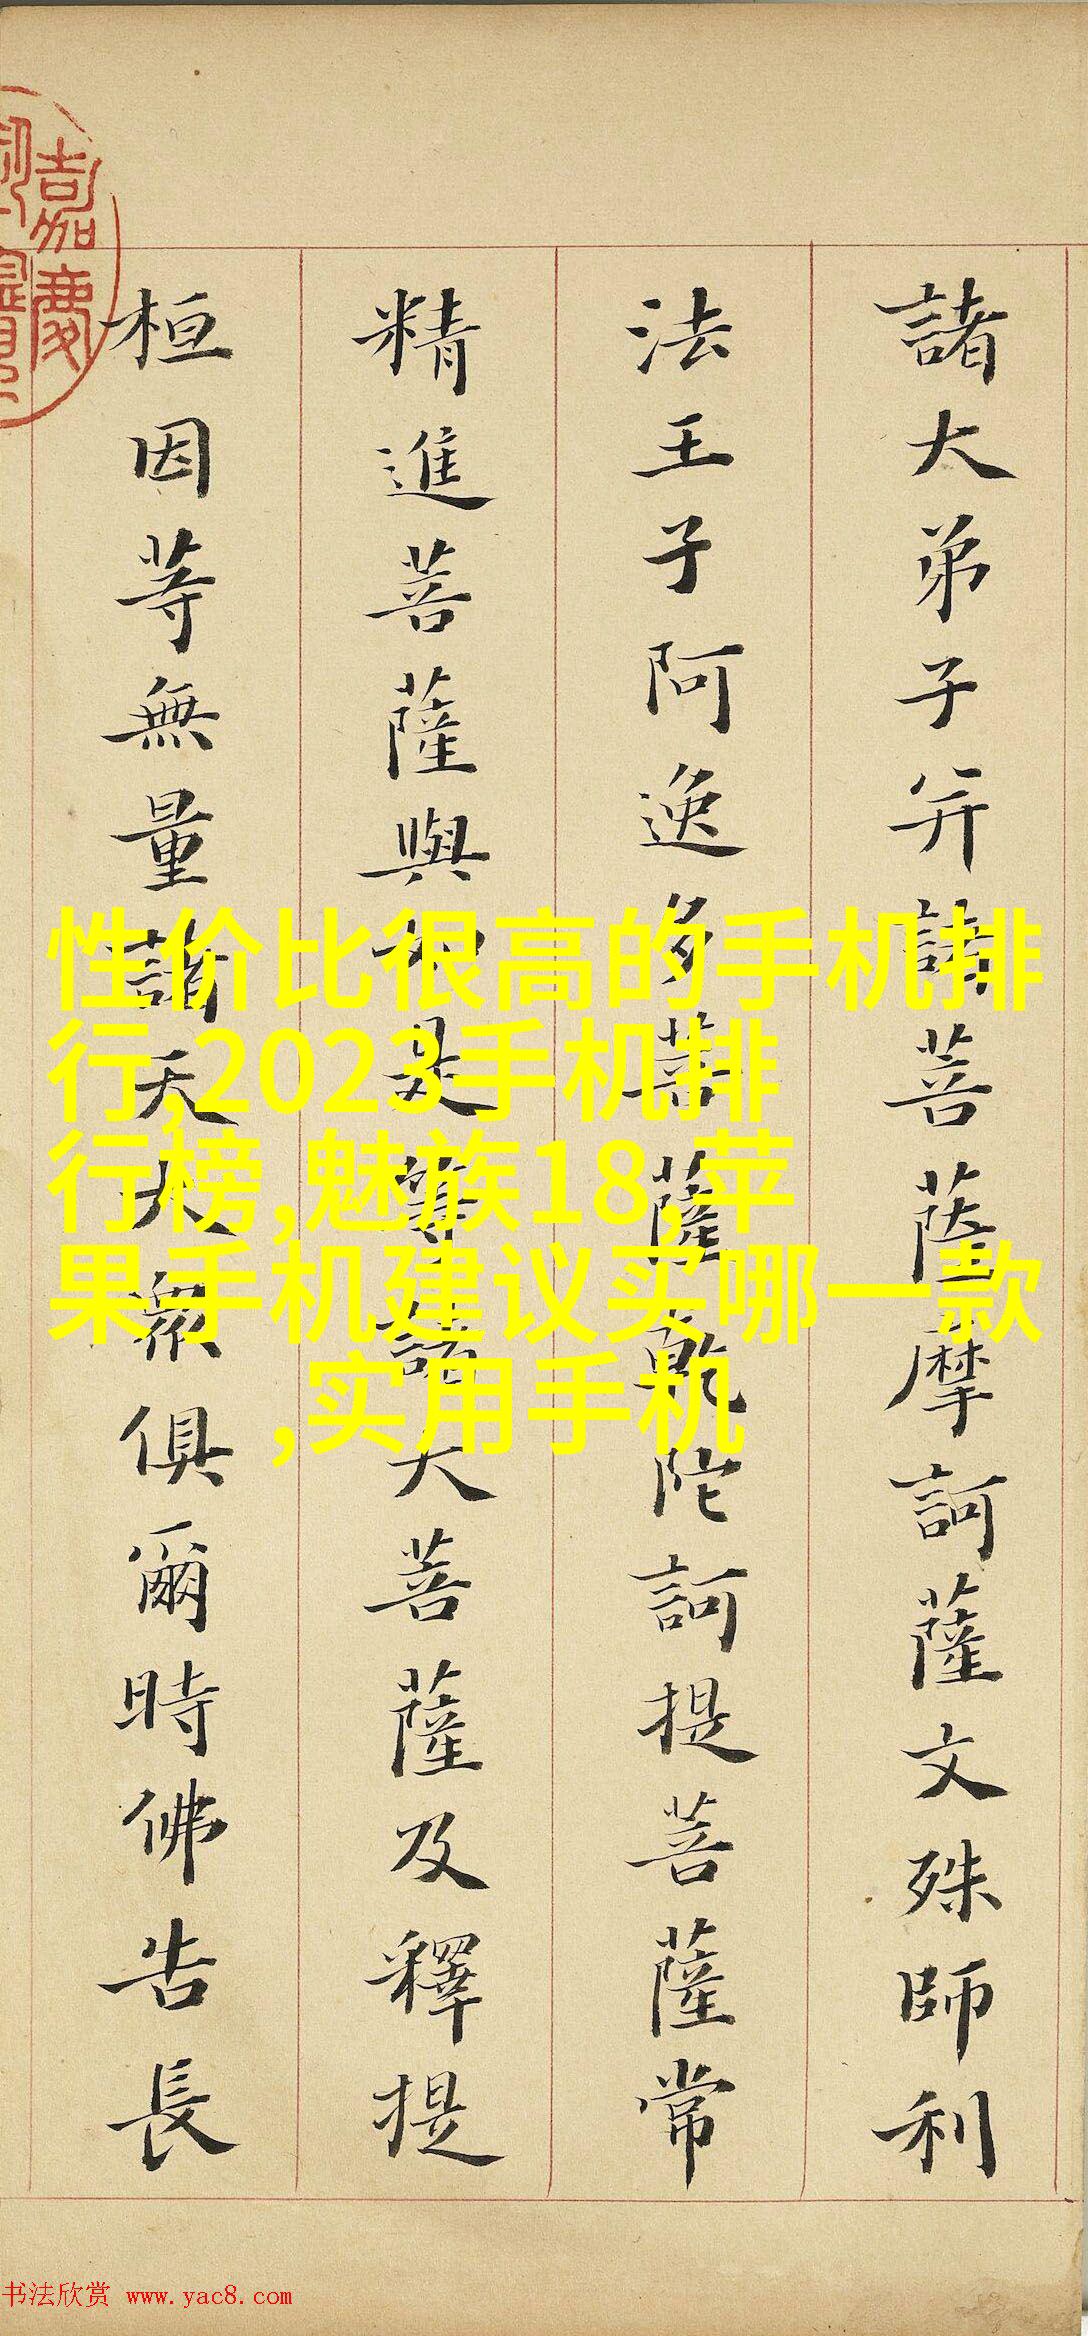 諸大弟子并諸菩薩摩訶薩文殊師利
法王子阿逸多菩薩乾陀訶提菩薩常
精進菩薩與如是等諸大菩薩及釋提
桓因等無量諸天大衆俱爾時佛告長
嘉慶
性价比很高的手机排
行,2023手机排
行榜,魅族18,苹
果手机建议买哪一款
,实用手机
书法欣赏 www.yac8.com